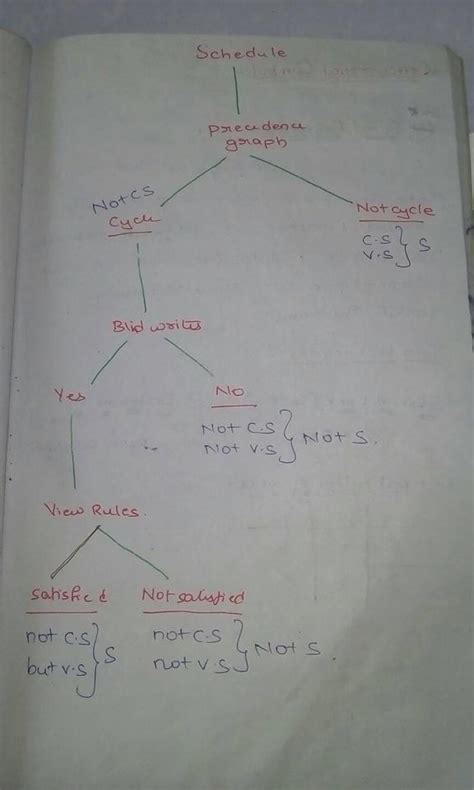 Schedule
Precedence
graph
Not CS
Cycle
Not cycle
C.S
V.S } S
Blid writes
Yes
No
Not C.S
Not V.S } Not S.
View Rules.
Satisfied
Not satisfied
not C.S
but V.S } S
not C.S
not V.S } Not S.